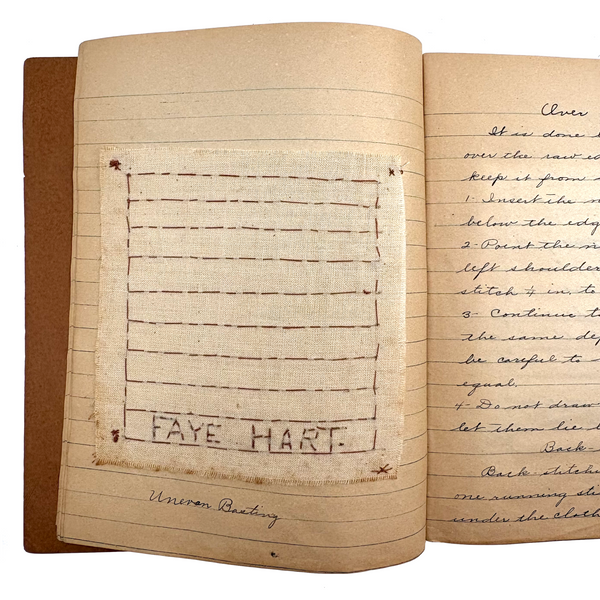 FAYE HART.
Uneven Basting
Over
It is done
over the raw ed
keep it from
1- Insert the n
below the edg
2- Point the n
left shoulder
stitch ¼ in. to
3- Continue t
the same dep
be careful to
equal.
4- Do not draw
let them lie
Back-
Back-stitche
one running sti
under the cloth